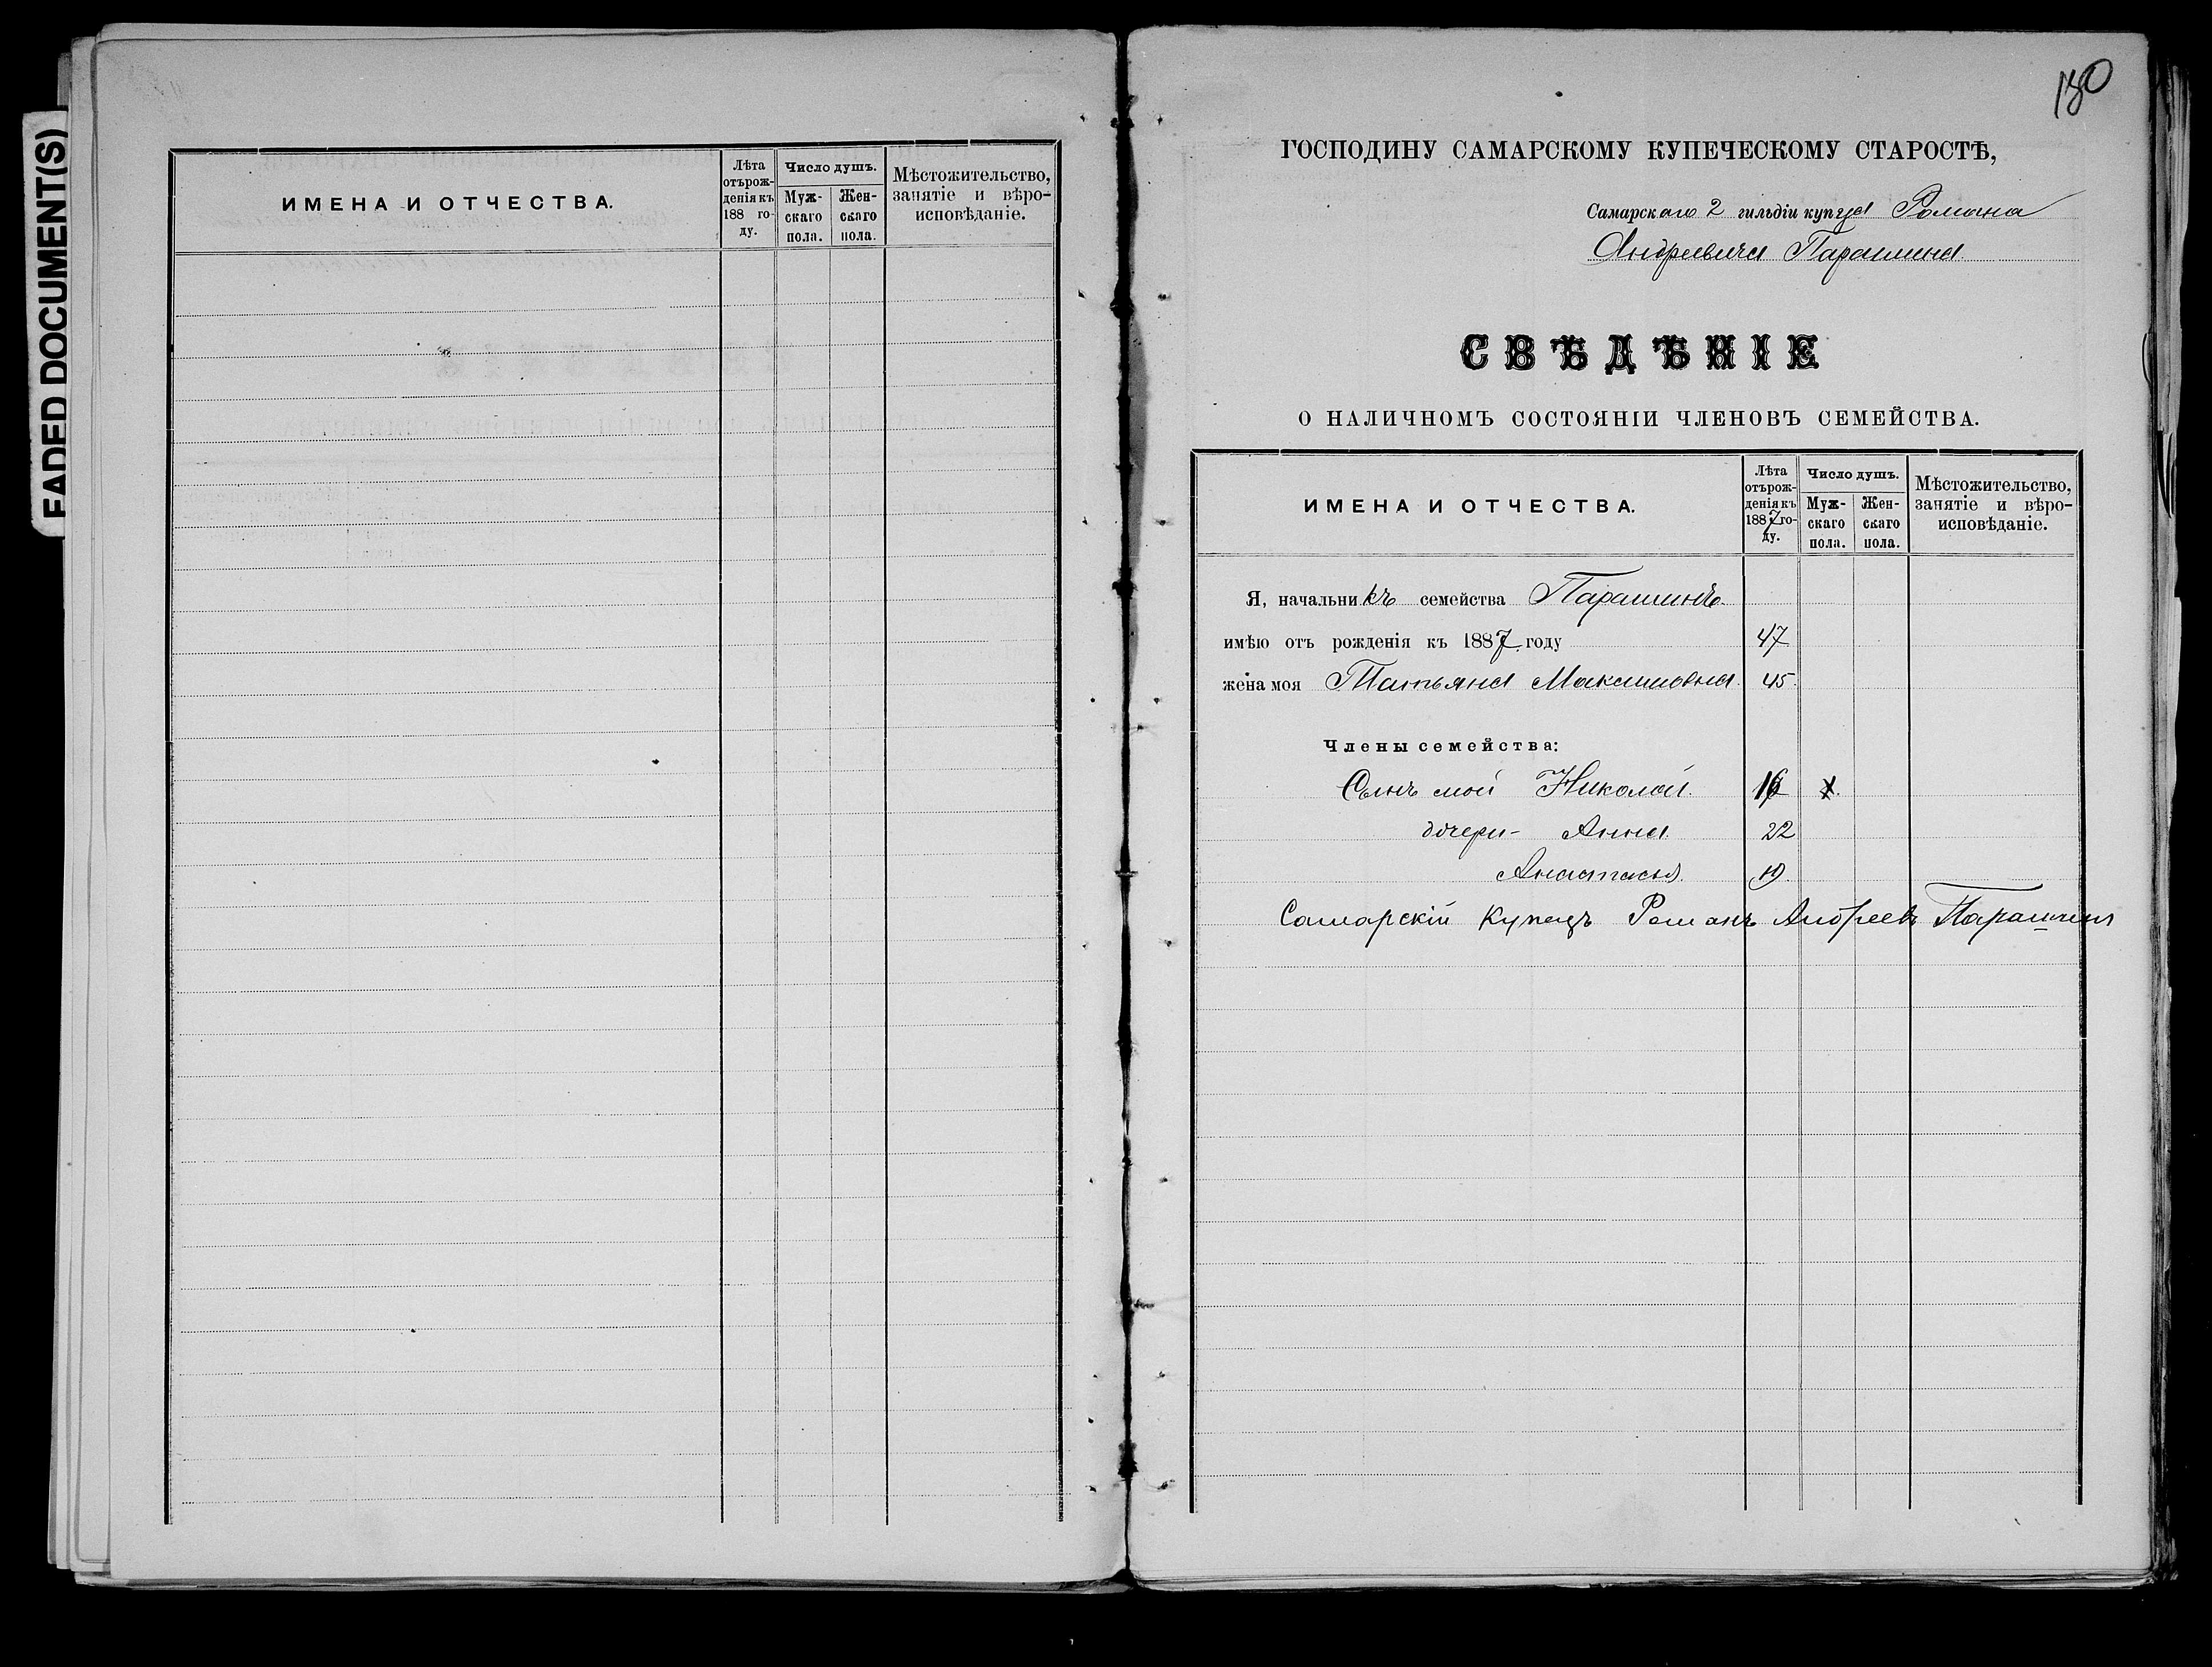 FADED DOCUMENT(S)
ИМЕНА И ОТЧЕСТВА.
Лѣта
отърож-
денія къ
188 го-
ду.
Число душъ.
Муж-
скаго
пола.
Жен-
скаго
пола.
Мѣстожительство,
занятіе и вѣро-
исповѣданіе.
180
ГОСПОДИНУ САМАРСКОМУ КУПЕЧЕСКОМУ СТАРОСТѢ,
Самарскаго 2 гильдіи купца Романа
Андреевича Парашина.
СВѢДѢНІЕ
О НАЛИЧНОМЪ СОСТОЯНІИ ЧЛЕНОВЪ СЕМЕЙСТВА.
ИМЕНА И ОТЧЕСТВА.
Лѣта
отърож-
денія къ
1887 го-
ду.
Число душъ.
Муж-
скаго
пола.
Жен-
скаго
пола.
Мѣстожительство,
занятіе и вѣро-
исповѣданіе.
Я, начальникъ семейства Парашинъ
имѣю отъ рожденія къ 1887 году 47
жена моя Татьяна Максимовна. 45.
Члены семейства:
Сынъ мой Николай. 16
дочери- Анна. 22
Анастасья. 19.
Самарскій Купецъ Романъ Андреевъ Парашинъ